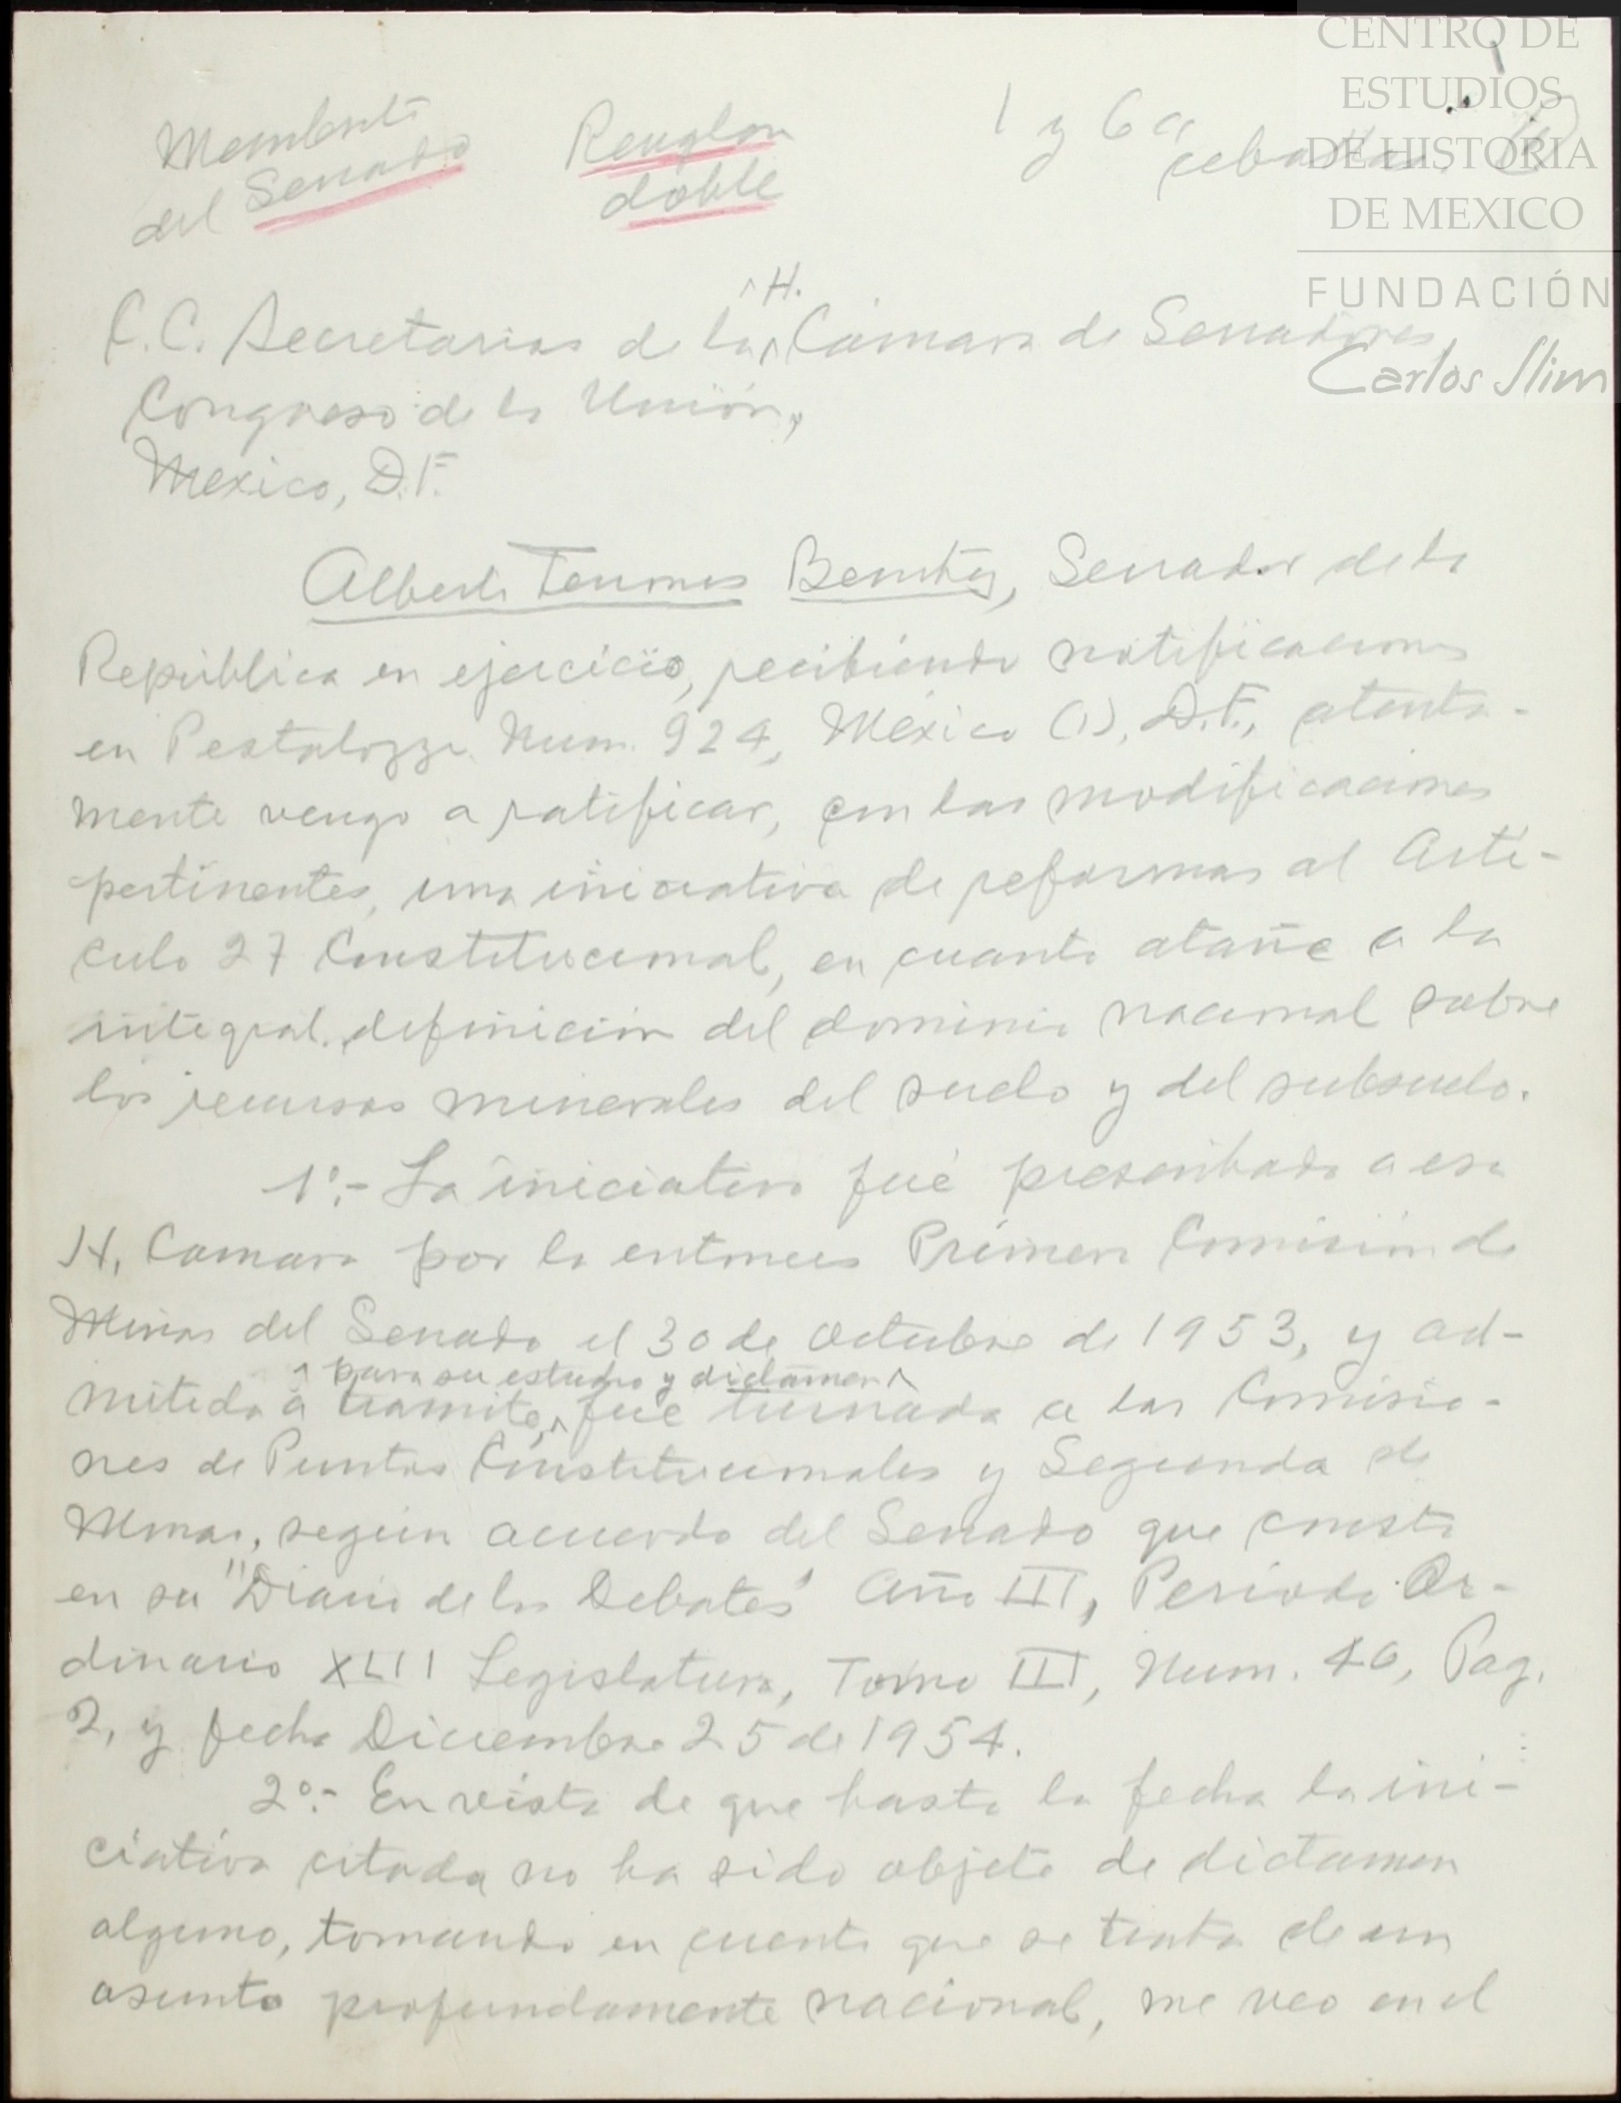 CENTRO DE
ESTUDIOS
DE HISTORIA
DE MEXICO
FUNDACIÓN
Carlos Slim
Membrete
del Senado
Renglon
doble
1 y 6 a
C.C. Secretarios de la ^H.^ Cámara de Senadores
Congreso de la Unión,
México, D.F.
Alberto Terrones Benítez, Senador de la
República en ejercicio, recibiendo notificaciones
en Pestalozzi Num. 924, México (1), D.F., atenta-
mente vengo a ratificar, con las modificaciones
pertinentes, una iniciativa de reformas al Artí-
culo 27 Constitucional, en cuanto atañe a la
integral definición del dominio nacional sobre
los recursos minerales del suelo y del subsuelo.
1º.- La iniciativa fué presentada a esa
H. Camara por la entonces Primera Comisión de
Minas del Senado el 30 de octubre de 1953, y ad-
mitida a tramite, ^para su estudio y dictamen^ fue turnada a las Comisio-
nes de Puntos Constitucionales y Segunda de
Minas, según acuerdo del Senado que consta
en su "Diario de los Debates" Año III, Periodo Or-
dinario XLII Legislatura, Tomo III, Num. 40, Pag.
2, y fecha Diciembre 25 de 1954.
2º.- En vista de que hasta la fecha la ini-
ciativa citada no ha sido objeto de dictamen
alguno, tomando en cuenta que se trata de un
asunto profundamente nacional, me veo en el